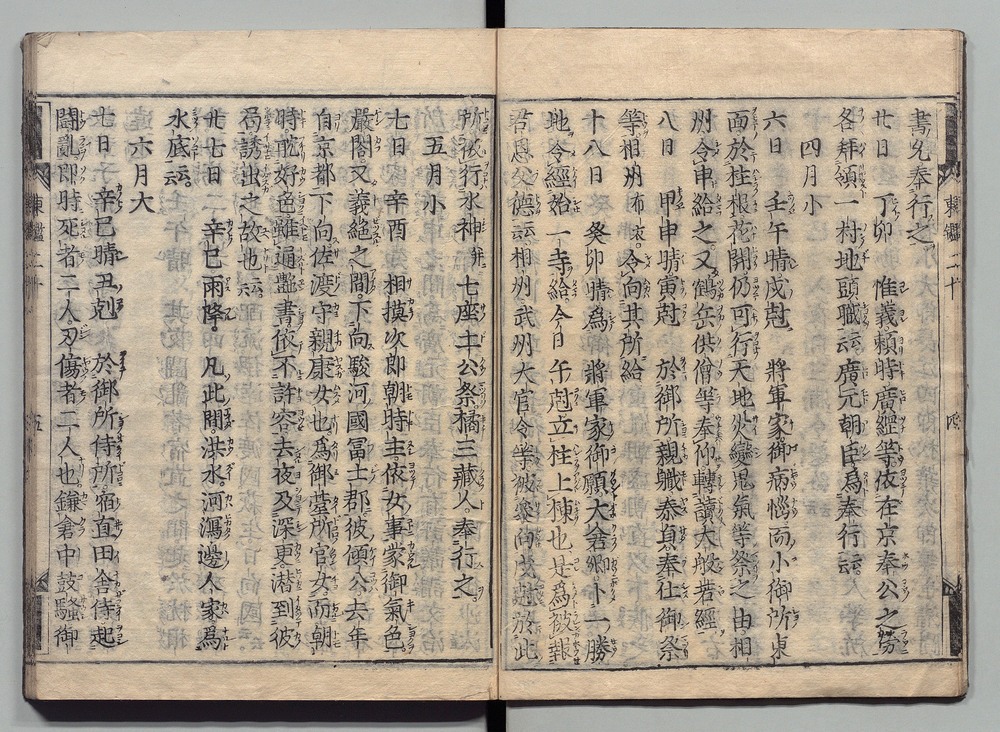 書免奉行之
廿日 丁卯 惟義頼時廣經等依在京奉公之勞
各拜領一村地頭職云云廣元朝臣為奉行云云
四月小
六日 壬午晴戌尅 將軍家御病惱而小御所東
面於柱根花開仍可行天地災變鬼氣等祭之由相
州令申給之又鶴岳供僧等奉仰轉讀大般若經
八日 甲申晴寅尅 於御所親職泰貞奉仕御祭
等相州布衣令向其所給
十八日 癸卯晴為 將軍家御願大倉郷卜一勝
地令經始一寺給今日午尅立柱上棟也是為被報
君恩父德云云相州武州大官令等被參向戌尅於此
所被行水神并七座土公祭橘三藏人奉行之
五月小
七日 辛酉 相摸次郎朝時主依女事蒙御氣色
嚴閤又義絕之間下向駿河國冨士郡彼傾公去年
自京都下向佐渡守親康女也為御墓所官女而朝
時耽好色雖通艷書依不許容去夜及深更潜到彼
局誘出之故也云云
廿七日 辛巳雨降 凡此間洪水河瀉邊人家為
水底云云
六月大
七日 辛巳晴丑尅 於御所侍所宿直田舎侍起
鬪亂即時死者二人刃傷者二人也鎌倉中鼓騷御
東鑑二十 四
東鑑二十 五